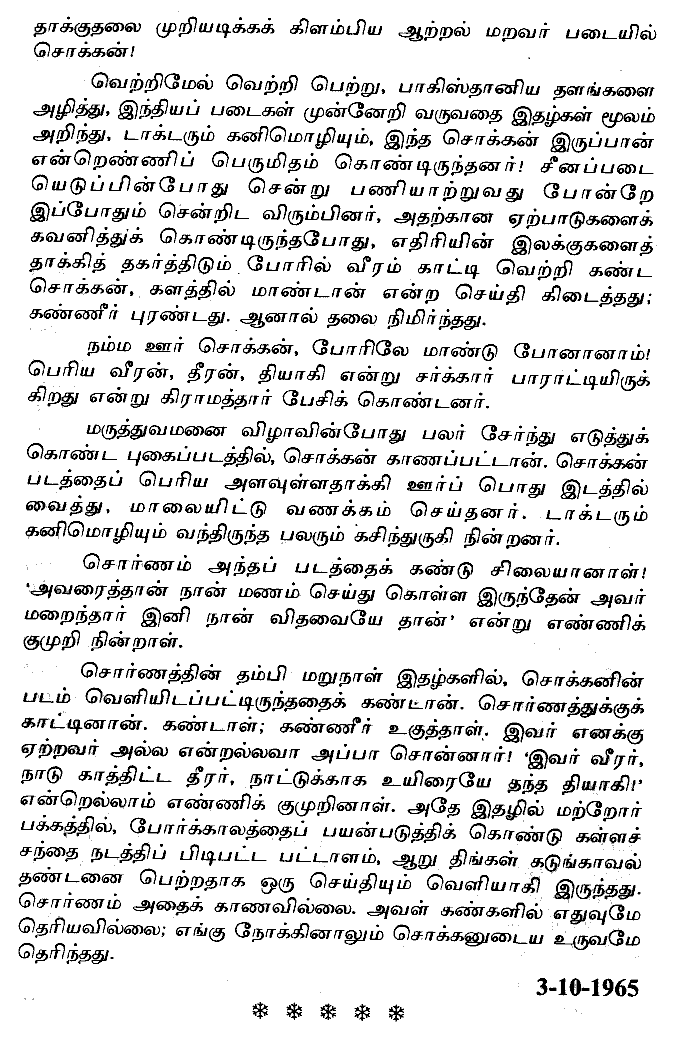 தாக்குதலை முறியடிக்கக் கிளம்பிய ஆற்றல் மறவர் படையில்
சொக்கன்!
வெற்றிமேல் வெற்றி பெற்று, பாகிஸ்தானிய தளங்களை
அழித்து, இந்தியப் படைகள் முன்னேறி வருவதை இதழ்கள் மூலம்
அறிந்து, டாக்டரும் கனிமொழியும், இந்த சொக்கன் இருப்பான்
என்றெண்ணிப் பெருமிதம் கொண்டிருந்தனர்! சீனப்படை
யெடுப்பின்போது சென்று பணியாற்றுவது போன்றே
இப்போதும் சென்றிட விரும்பினர், அதற்கான ஏற்பாடுகளைக்
கவனித்துக் கொண்டிருந்தபோது, எதிரியின் இலக்குகளைத்
தாக்கித் தகர்த்திடும் போரில் வீரம் காட்டி வெற்றி கண்ட
சொக்கன், களத்தில் மாண்டான் என்ற செய்தி கிடைத்தது;
கண்ணீர் புரண்டது. ஆனால் தலை நிமிர்ந்தது.
நம்ம ஊர் சொக்கன், போரிலே மாண்டு போனானாம்!
பெரிய வீரன், தீரன், தியாகி என்று சர்க்கார் பாராட்டியிருக்
கிறது என்று கிராமத்தார் பேசிக் கொண்டனர்.
மருத்துவமனை விழாவின்போது பலர் சேர்ந்து எடுத்துக்
கொண்ட புகைப்படத்தில், சொக்கன் காணப்பட்டான். சொக்கன்
படத்தைப் பெரிய அளவுள்ளதாக்கி ஊர்ப் பொது இடத்தில்
வைத்து, மாலையிட்டு வணக்கம் செய்தனர். டாக்டரும்
கனிமொழியும் வந்திருந்த பலரும் கசிந்துருகி நின்றனர்.
சொர்ணம் அந்தப் படத்தைக் கண்டு சிலையானாள்!
‘அவரைத்தான் நான் மணம் செய்து கொள்ள இருந்தேன் அவர்
மறைந்தார் இனி நான் விதவையே தான்’ என்று எண்ணிக்
குமுறி நின்றாள்.
சொர்ணத்தின் தம்பி மறுநாள் இதழ்களில், சொக்கனின்
படம் வெளியிடப்பட்டிருந்ததைக் கண்டான். சொர்ணத்துக்குக்
காட்டினான். கண்டாள்; கண்ணீர் உகுத்தாள். இவர் எனக்கு
ஏற்றவர் அல்ல என்றல்லவா அப்பா சொன்னார்! ‘இவர் வீரர்,
நாடு காத்திட்ட தீரர், நாட்டுக்காக உயிரையே தந்த தியாகி!’
என்றெல்லாம் எண்ணிக் குமுறினாள். அதே இதழில் மற்றோர்
பக்கத்தில், போர்க்காலத்தைப் பயன்படுத்திக் கொண்டு கள்ளச்
சந்தை நடத்திப் பிடிபட்ட பட்டாளம், ஆறு திங்கள் கடுங்காவல்
தண்டனை பெற்றதாக ஒரு செய்தியும் வெளியாகி இருந்தது.
சொர்ணம் அதைக் காணவில்லை. அவள் கண்களில் எதுவுமே
தெரியவில்லை; எங்கு நோக்கினாலும் சொக்கனுடைய உருவமே
தெரிந்தது.
3-10-1965